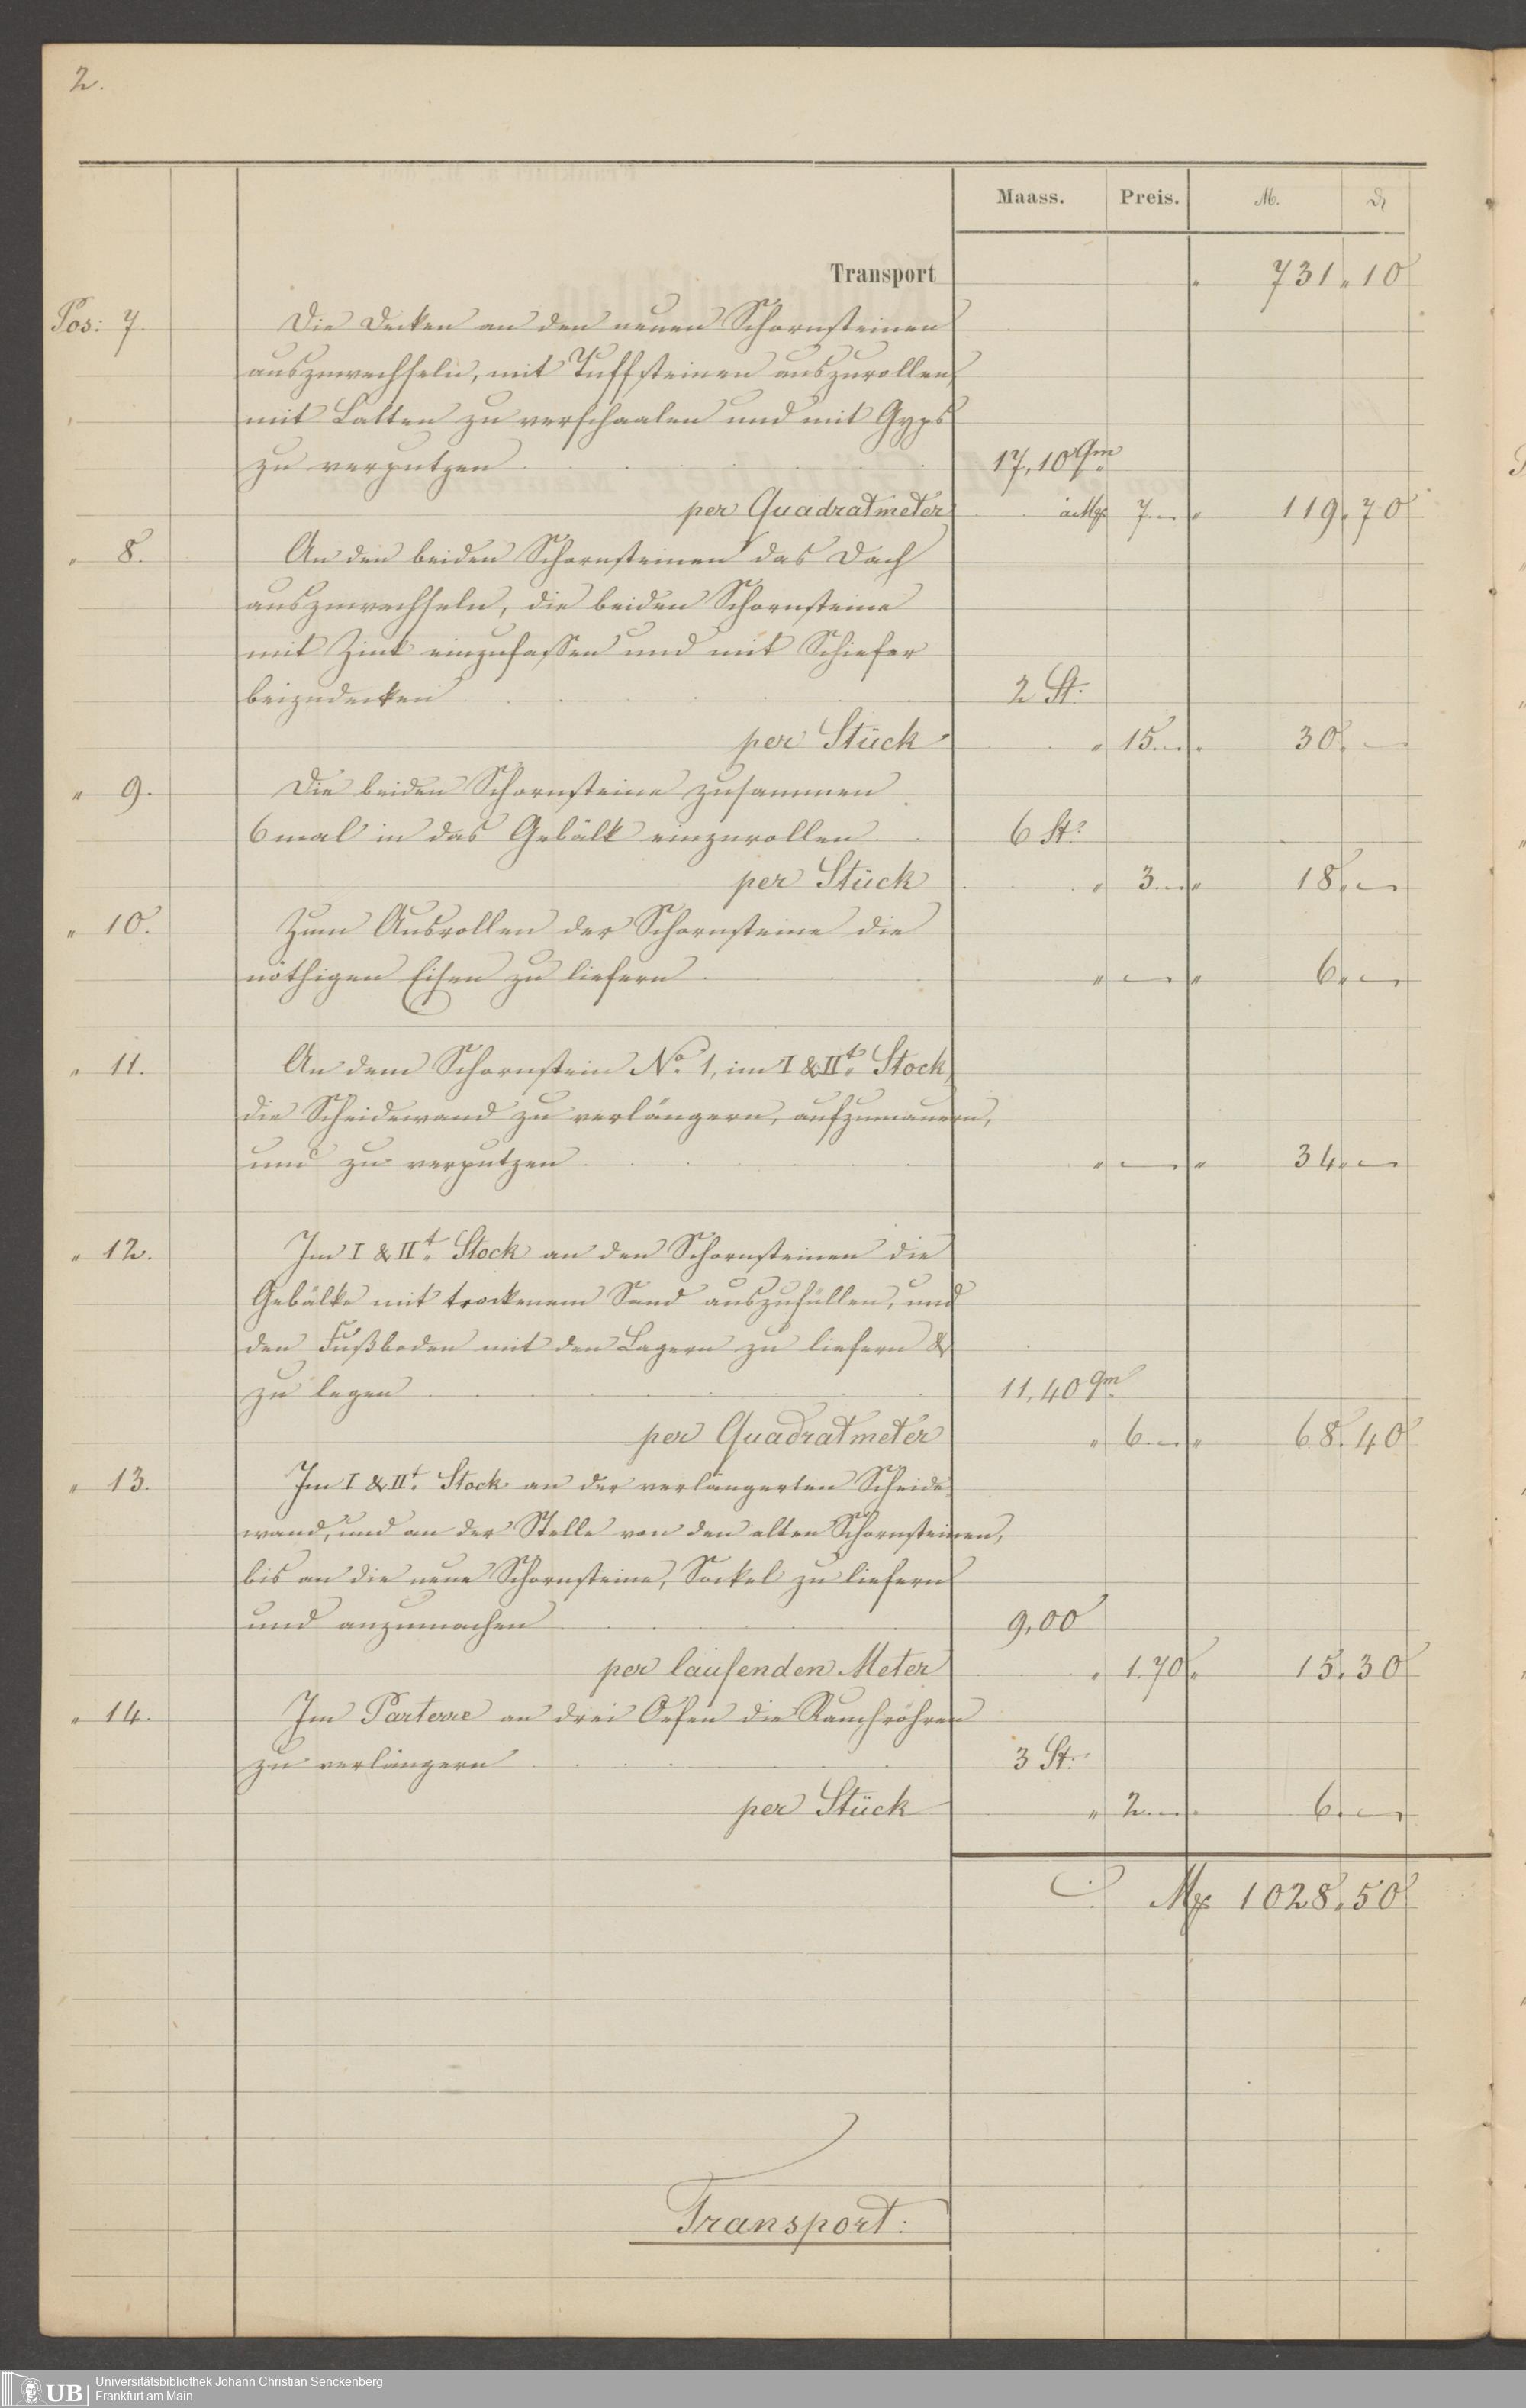 2.
Maass. Preis. M. ₰
Transport " 731 " 10
Pos: 7. Die Decken an den neuen Schornsteinen
auszuwechseln, mit Tuffsteinen auszurollen,
mit Latten zu verschaalen und mit Gyps
zu verputzen . . . . 17,10 qm
per Quadratmeter . . à M 7. — " 119. 70
" 8. An den beiden Schornsteinen das Dach
auszuwechseln, die beiden Schornsteine
mit Zink einzufassen und mit Schiefer
beizudecken . . . . 2 St.
per Stück " 15. — " 30. —
" 9. Die beiden Schornsteine zusammen
6 mal in das Gebälk einzurollen . . 6 St.
per Stück " 3. — " 18. —
" 10. Zum Ausrollen der Schornsteine die
nöthigen Eisen zu liefern . . . " — " 6. —
" 11. An dem Schornstein No. 1, im I & IIt. Stock,
die Scheidewand zu verlängern, aufzumauern,
und zu verputzen . . . . " — " 34. —
" 12. Im I & IIt. Stock an den Schornsteinen die
Gebälke mit trockenem Sand auszufüllen, und
den Fußboden mit den Lagern zu liefern &
zu legen . . . . 11,40 qm
per Quadratmeter " 6. — " 68. 40
" 13. Im I & IIt. Stock an der verlängerten Scheide-
wand, und an der Stelle von den alten Schornsteinen,
bis an die neue Schornsteine, Sockel zu liefern
und anzumachen . . . . 9,00
per laufenden Meter " 1.70 " 15. 30
" 14. Im Parterre an drei Oefen die Rauchröhren
zu verlängern . . . . 3 St.
per Stück " 2. — " 6. —
M 1028. 50
Transport:
UB Universitätsbibliothek Johann Christian Senckenberg
Frankfurt am Main